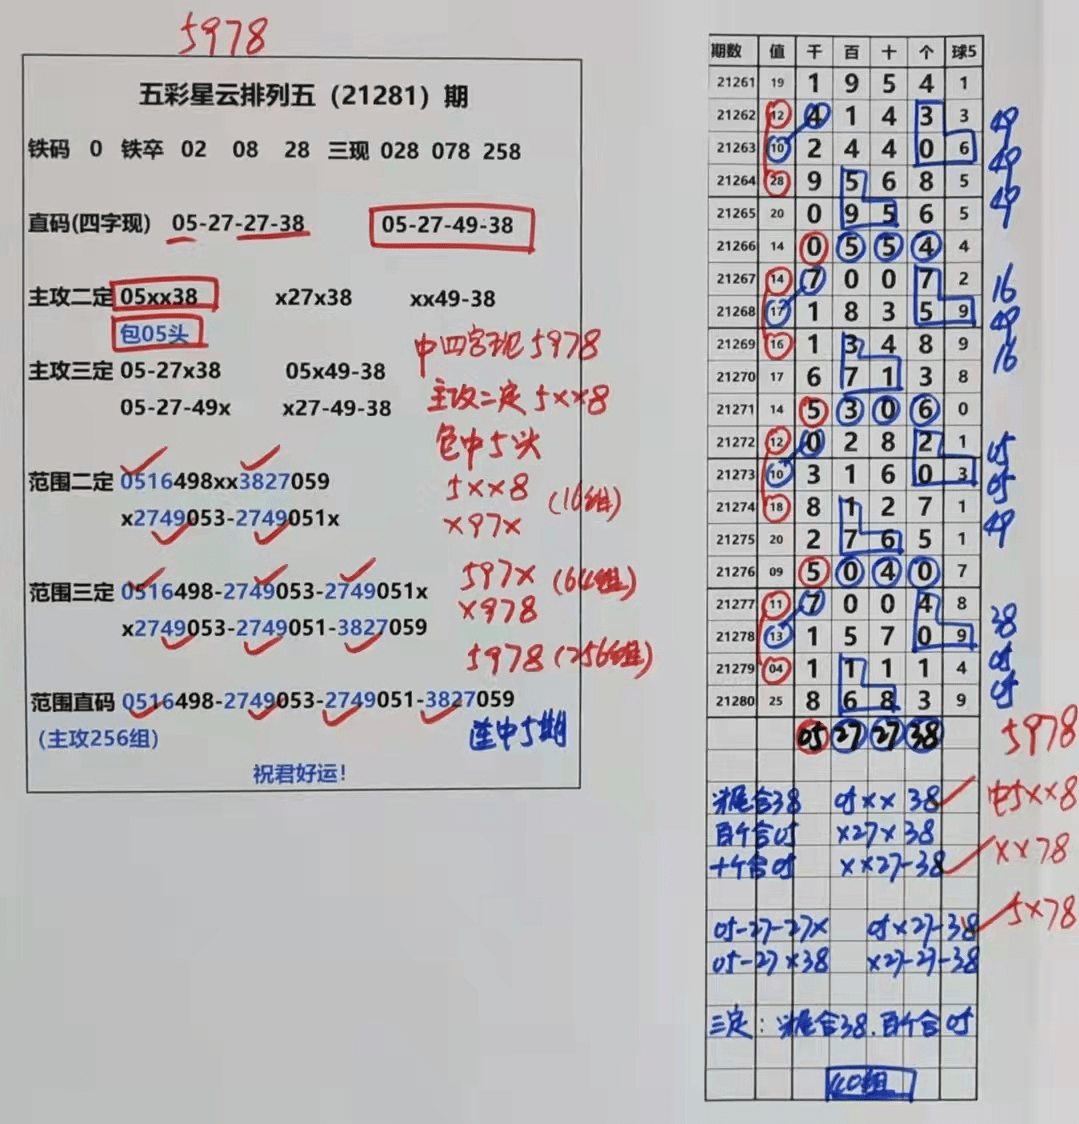 5978
五彩星云排列五（21281）期
铁码 0 铁卒 02 08 28 三现 028 078 258
直码(四字现) 05-27-27-38 05-27-49-38
主攻二定 05xx38 x27x38 xx49-38
包05头
中四字现 5978
主攻三定 05-27x38 05x49-38
主攻二定 5××8
05-27-49x x27-49-38
包中5头
范围二定 0516498xx3827059
5××8 (16组)
x2749053-2749051x
×97×
范围三定 0516498-2749053-2749051x
597× (64组)
x2749053-2749051-3827059
×978
5978 (256组)
范围直码 0516498-2749053-2749051-3827059
(主攻256组)
连中5期
祝君好运!
期数 值 千 百 十 个 球5
21261 19 1 9 5 4 1
21262 12 4 1 4 3 3 49
21263 10 2 4 4 0 6 49
21264 28 9 5 6 8 5 49
21265 20 0 9 5 6 5
21266 14 0 5 5 4 4
21267 14 7 0 0 7 2 16
21268 17 1 8 3 5 9 49
21269 16 1 3 4 8 9 16
21270 17 6 7 1 3 8
21271 14 5 3 0 6 0
21272 12 0 2 8 2 1 05
21273 10 3 1 6 0 3 05
21274 18 8 1 2 7 1 49
21275 20 2 7 6 5 1
21276 09 5 0 4 0 7
21277 11 7 0 0 4 8 38
21278 13 1 5 7 0 9 05
21279 04 1 1 1 1 4 05
21280 25 8 6 8 3 9
05 27 27 38 5978
头尾合38 05×× 38 中5××8
百个合05 ×27×38
十个合05 ××27-38 ××78
05-27-27× 05×27-38 5×78
05-27×38 ×27-27-38
三定：头尾合38.百个合05
40组